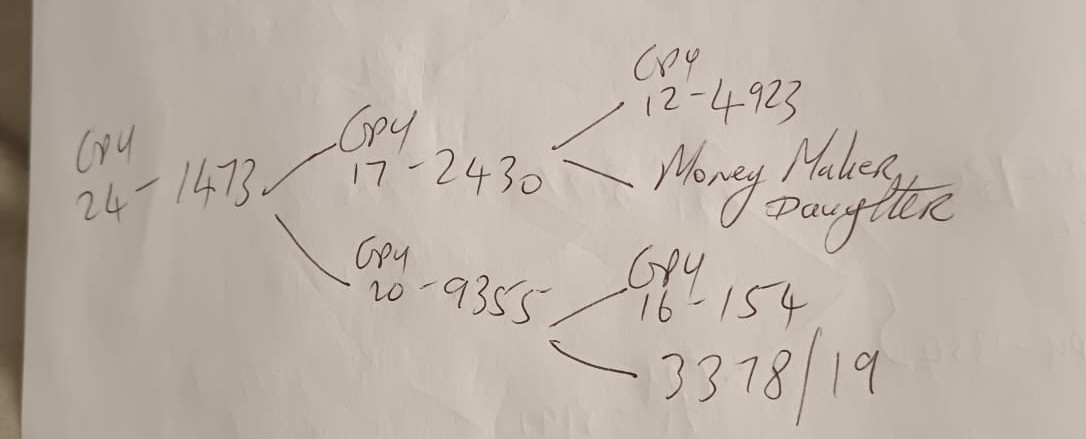 GPY
24-1473
GPY
17-2430
GPY
12-4923
Money Maker
Daughter
GPY
20-9355
GPY
16-154
3378/19